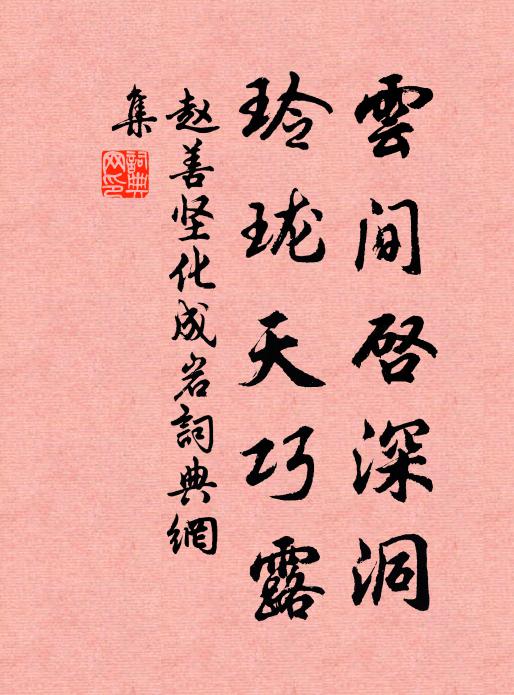 雲間啓深洞
玲珑天巧露
赵善坚化成岩詞典網
集
詞典
网印